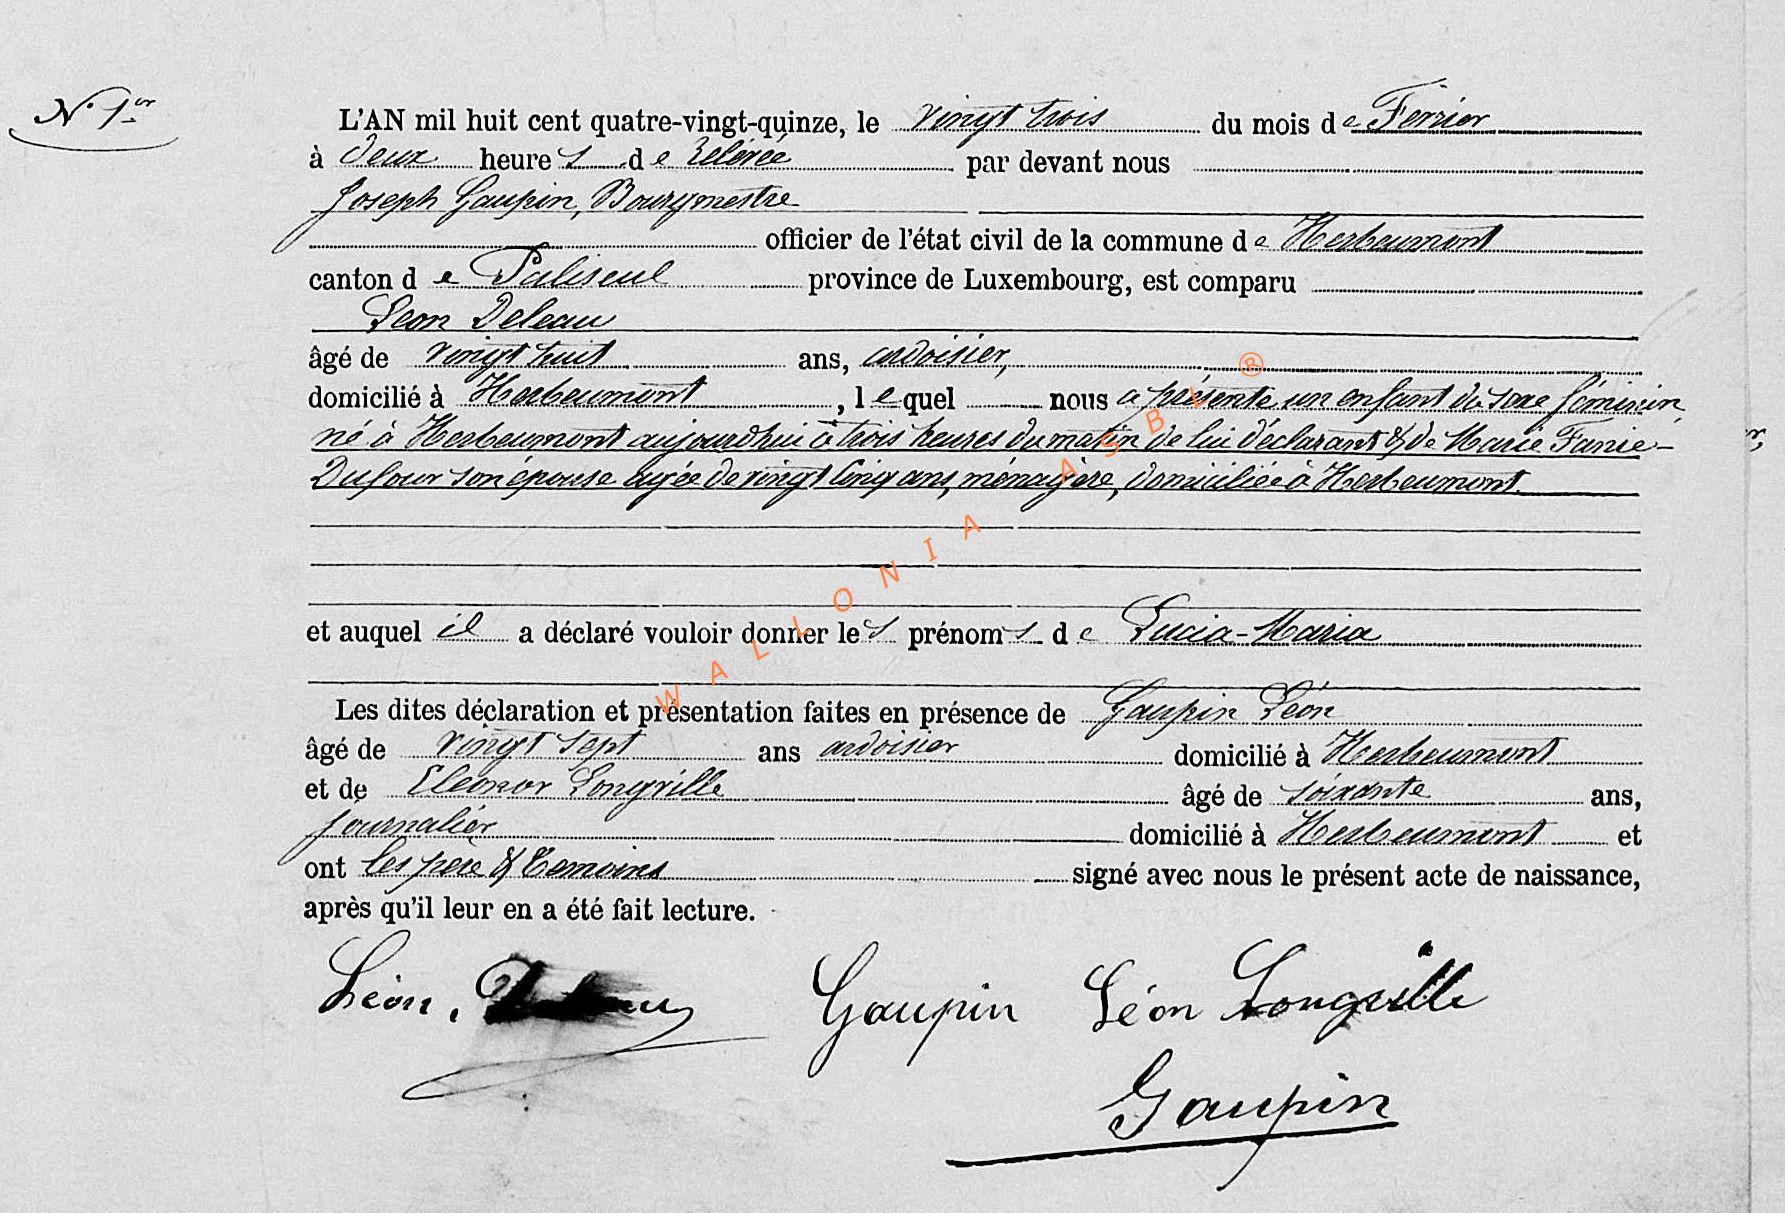 N° 1er
L'AN mil huit cent quatre-vingt-quinze, le vingt trois du mois de Fevrier
à deux heures de relevée par devant nous
Joseph Gaupin, Bourgmestre
officier de l'état civil de la commune de Herbeumont
canton de Paliseul province de Luxembourg, est comparu
Leon Deleau
âgé de vingt huit ans, ardoisier,
domicilié à Herbeumont, lequel nous a présenté un enfant du sexe féminin
né à Herbeumont aujourdhui à trois heures du matin de lui déclarant & de Marie Fanie
Dufour son épouse agée de vingt cinq ans, ménagère, domiciliée à Herbeumont
et auquel il a déclaré vouloir donner les prénoms de Lucia-Maria
Les dites déclaration et présentation faites en présence de Gaupin Léon
âgé de vingt sept ans ardoisier domicilié à Herbeumont
et de Eléonor Longville âgé de soixante ans,
journalier domicilié à Herbeumont et
ont les père & temoins signé avec nous le présent acte de naissance,
après qu'il leur en a été fait lecture.
Léon, Gaupin Léon Longville
Gaupin
WALLONIA ASBL ®